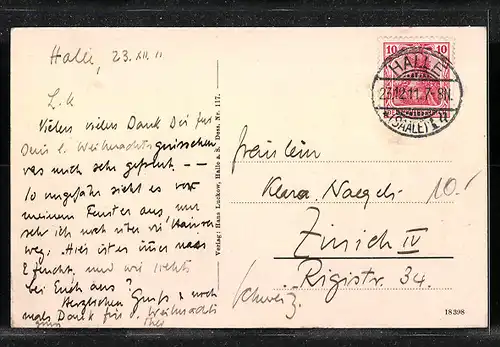 Halle, 23. XII. 11
L. K
Vielen vielen Dank Dir für
Dein l. Weihnachtsgrüsschen
was mich sehr gefreut. --
So ungefähr sieht es vor
meinem Fenster aus, nur
sehr ich noch über
weg. Hier ist es immer nass
& feucht, und wie steht's
bei Euch aus?
Herzlichen Gruss & noch
mals Dank für d. Weihnachts
Verlag: Hans Luckow, Halle a. S. Dess. Nr. 117.
10 10
HALLE
23.12.11. 7-8N.
* (SAALE) 1 q
Fräulein
Klara Naegeli
10.-
Zürich IV
Rigistr. 34.
Schweiz.
18398